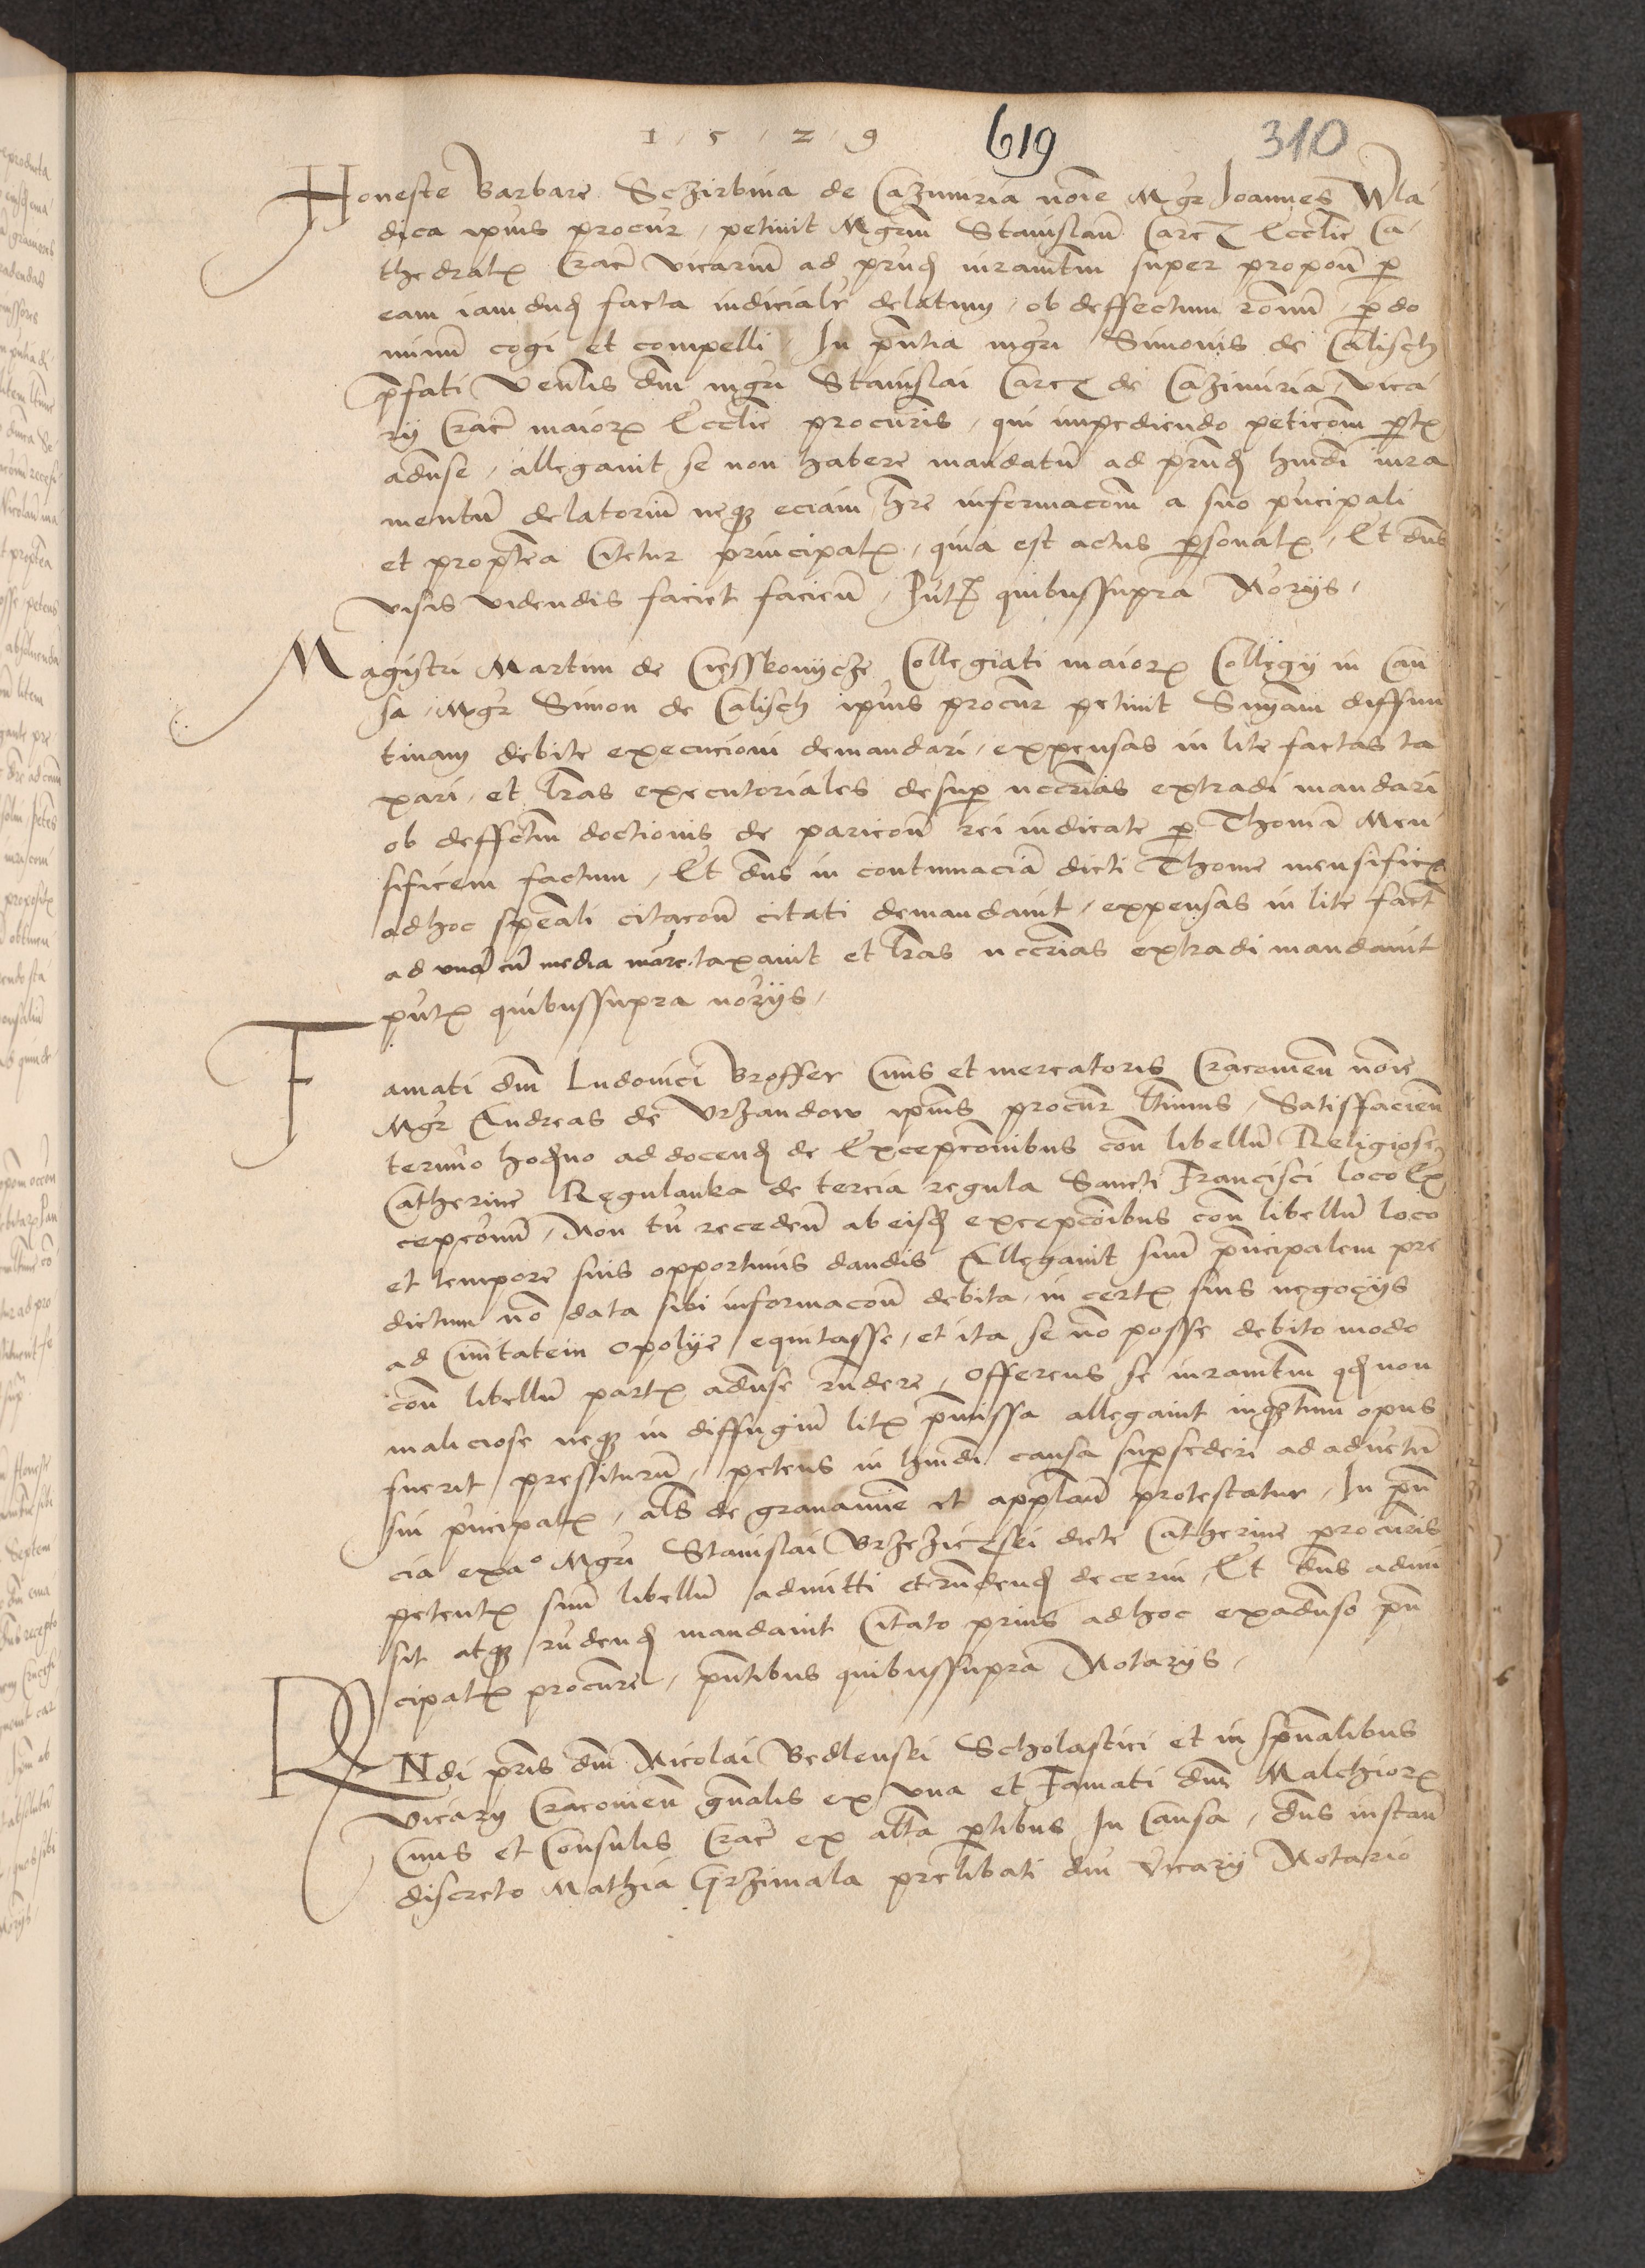 1 5 2 9 619 310
Honeste Barbare Sczirbina de Cazimiria noie Mgr Joannes Wla
dica ipius procur, petiuit Mgrm Stanislau Carcz Ecclie Ca
thedralis Crac vicariu ad prud iuramtm super propon per
eam iamdud facta iudicialr delatum, ob deffectum ronum, per do
minum cogi et compelli, In pntia mgri Simonis de Calisch
pfati venlis dni mgri Stanislai Carcz de Cazimiria, vica
rij Crac maioris Ecclie procuris, qui impediendo peticom ptis
aduse, allegauit se non habere mandatu ad prnd hmdi iura
mentu delatoriu neqz eciam hre informacom a suo pncipali
et proptea Citetur principalis, quia est actus psonalis, Et dns
visis videndis faciet faciend, Pntibus quibussupra Norijs,
Magistri Martini de Cressbonycze Collegiati maioris Collegij in Cau
sa, Mgr Simon de Calisch ipius procur petiuit Sniam diffini
tiuam debite execucioni demandari, expensas in lite factas ta
xari, et lras executoriales desup nccrias extradi mandari
ob deffctm doctionis de paricon rei iudicate p Thoma Men
sificem factum, Et dns in contumacia dicti Thome mensificis
adhoc speali citacon citati demandauit, expensas in lite fact
ad una cu media marc. taxauit et lras nccrias extradi mandauit
pntibus quibussupra norijs,
Famati dni Ludouici Broffer Ciuis et mercatoris Cracouien noie
Mgr Andreas de Vrzandow ipius procur ltimus, Satisfacien
termino hodno ad docend de Excepconibus con libellu Religiose
Catherine Regulanka de tercia regula Sancti Francisci loco Ex
cepconu, Non tn recedend ab eisd excepconibus con libellum loco
et tempore suis opportunis dandis Allegauit suu pncipalem pre
dictum no data sibi informacon debita, in certis suis negocijs
ad Ciuitatem Opolije equitasse, et ita se no posse debito modo
con libellu partis aduse rndere, Offerens se iuramtm qd non
maliciose neqz in diffugiu litis pmissa allegauit inqntum opus
fuerit prestituru, petens in hmdi causa supsederi ad aduentu
sui pncipalis, als de grauamie et applan protestatur, In pn
cia exa° Mgri Stanislai Brzezicski dicte Catherine procuris
petentis suu libellu admitti et rndend decerni, Et dns admi
sit atqz rndend mandauit Citato prius adhoc exaduso pn
cipalis procure, pntibus quibussupra Notarijs,
RNdi pris dni Nicolai Bedlenski Scholastici et in spualibus
vicarij Cracouien gnalis ex vna et Famati dni Malchioris
Ciuis et Consulis Crac ex alta ptibus In Causa, dns instan
discreto Mathia Grzimala prelibati dni Vicarij Notario